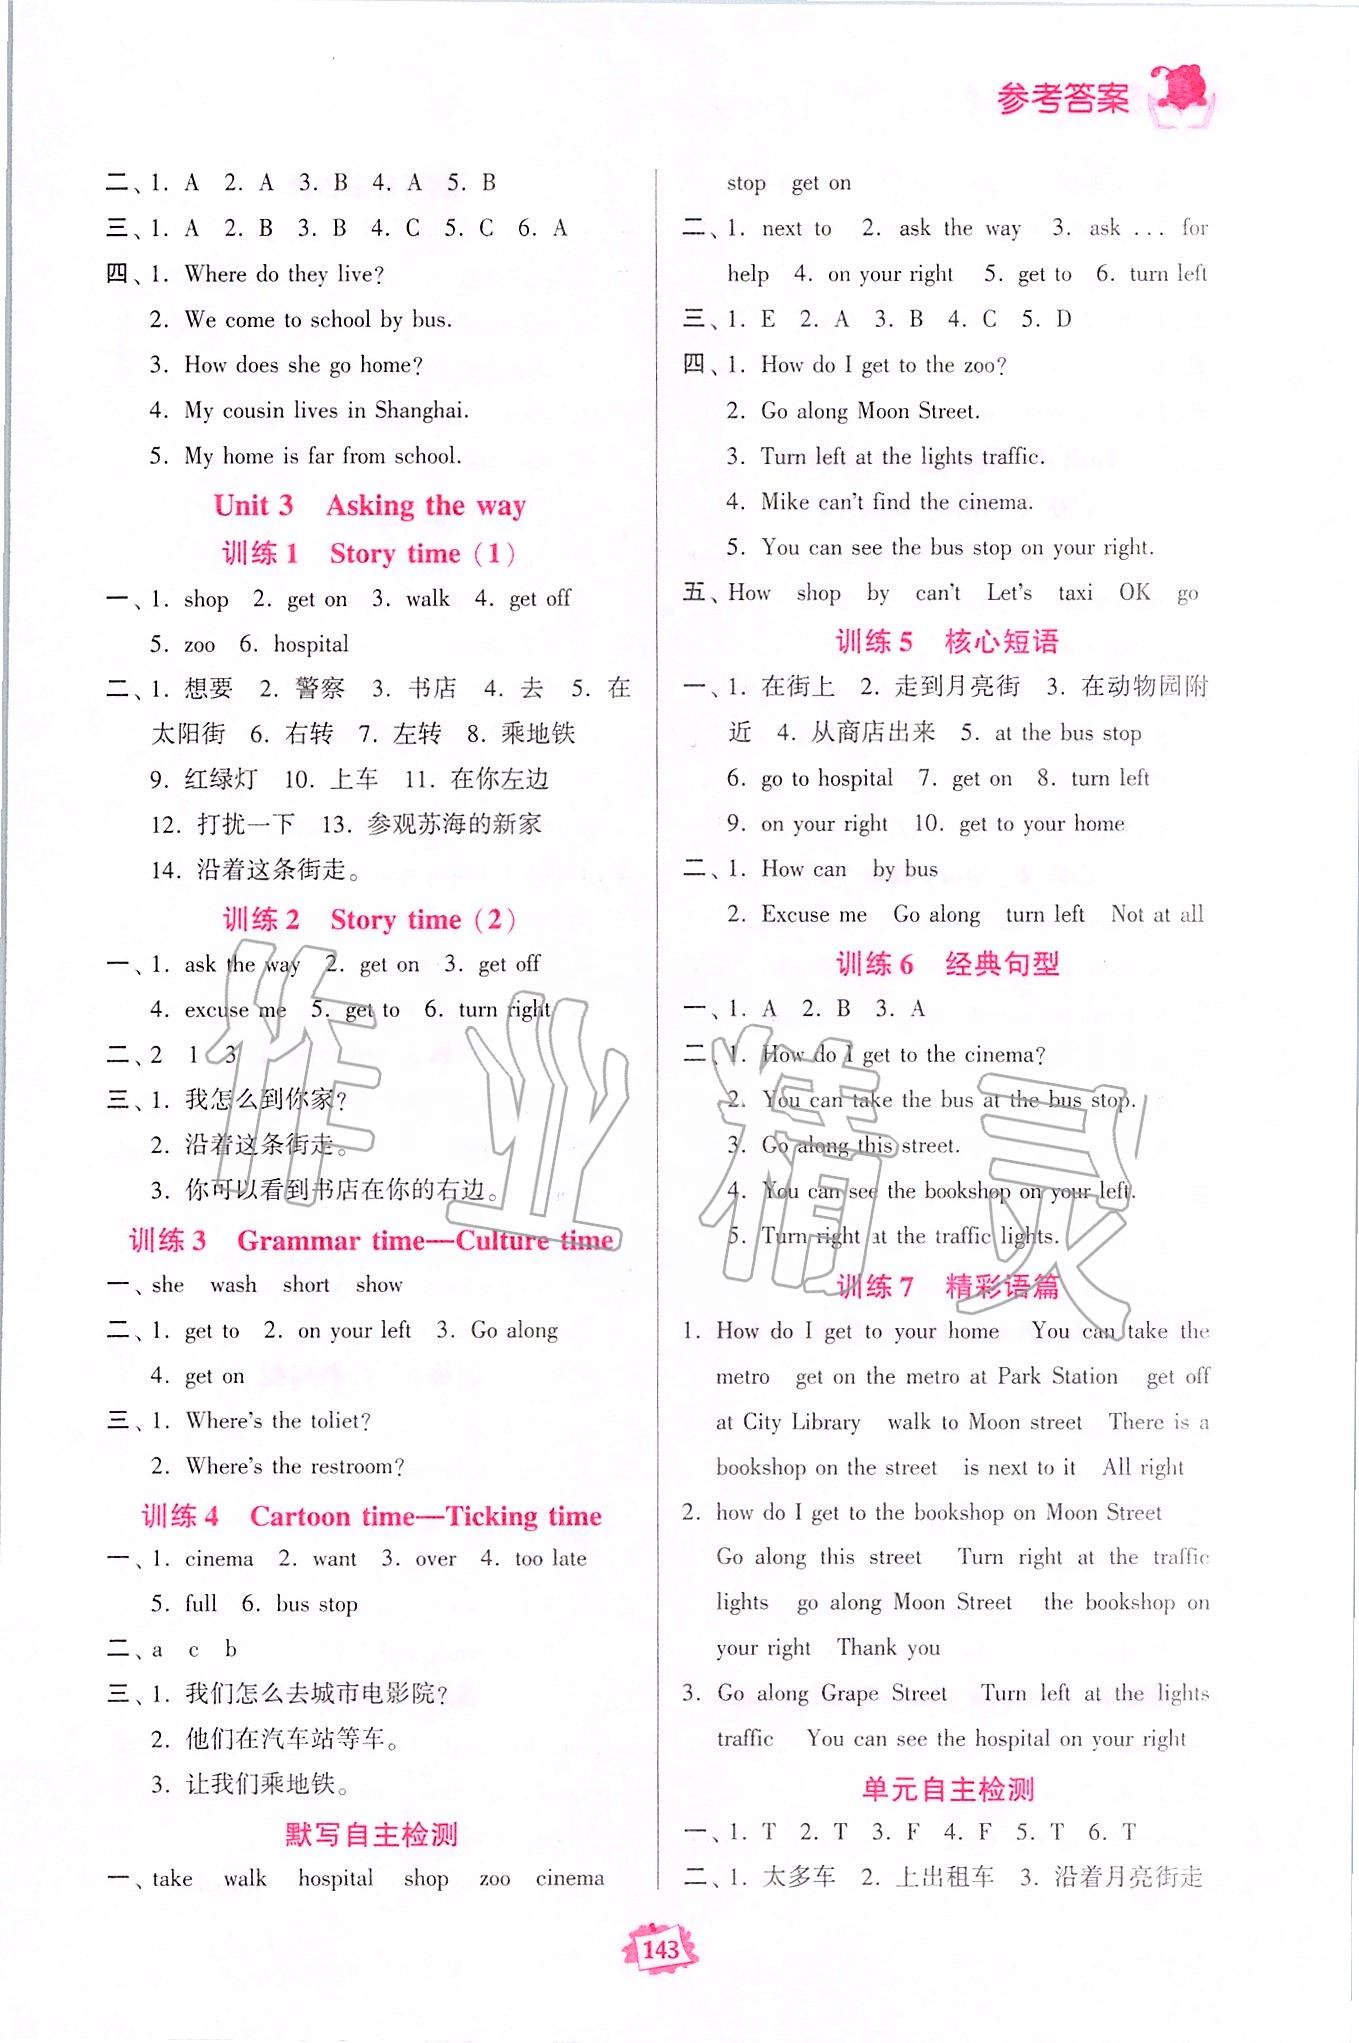 参考答案
二、1. A 2. A 3. B 4. A 5. B
三、1. A 2. B 3. B 4. C 5. C 6. A
四、1. Where do they live?
2. We come to school by bus.
3. How does she go home?
4. My cousin lives in Shanghai.
5. My home is far from school.
Unit 3 Asking the way
训练1 Story time (1)
一、1. shop 2. get on 3. walk 4. get off
5. zoo 6. hospital
二、1. 想要 2. 警察 3. 书店 4. 去 5. 在
太阳街 6. 右转 7. 左转 8. 乘地铁
9. 红绿灯 10. 上车 11. 在你左边
12. 打扰一下 13. 参观苏海的新家
14. 沿着这条街走。
训练2 Story time (2)
一、1. ask the way 2. get on 3. get off
4. excuse me 5. get to 6. turn right
二、2 1 3
三、1. 我怎么到你家?
2. 沿着这条街走。
3. 你可以看到书店在你的右边。
训练3 Grammar time—Culture time
一、she wash short show
二、1. get to 2. on your left 3. Go along
4. get on
三、1. Where's the toliet?
2. Where's the restroom?
训练4 Cartoon time—Ticking time
一、1. cinema 2. want 3. over 4. too late
5. full 6. bus stop
二、a c b
三、1. 我们怎么去城市电影院?
2. 他们在汽车站等车。
3. 让我们乘地铁。
默写自主检测
一、take walk hospital shop zoo cinema
stop get on
二、1. next to 2. ask the way 3. ask ... for
help 4. on your right 5. get to 6. turn left
三、1. E 2. A 3. B 4. C 5. D
四、1. How do I get to the zoo?
2. Go along Moon Street.
3. Turn left at the lights traffic.
4. Mike can't find the cinema.
5. You can see the bus stop on your right.
五、How shop by can't Let's taxi OK go
训练5 核心短语
一、1. 在街上 2. 走到月亮街 3. 在动物园附
近 4. 从商店出来 5. at the bus stop
6. go to hospital 7. get on 8. turn left
9. on your right 10. get to your home
二、1. How can by bus
2. Excuse me Go along turn left Not at all
训练6 经典句型
一、1. A 2. B 3. A
二、1. How do I get to the cinema?
2. You can take the bus at the bus stop.
3. Go along this street.
4. You can see the bookshop on your left.
5. Turn right at the traffic lights.
训练7 精彩语篇
1. How do I get to your home You can take the
metro get on the metro at Park Station get off
at City Library walk to Moon street There is a
bookshop on the street is next to it All right
2. how do I get to the bookshop on Moon Street
Go along this street Turn right at the traffic
lights go along Moon Street the bookshop on
your right Thank you
3. Go along Grape Street Turn left at the lights
traffic You can see the hospital on your right
单元自主检测
一、1. T 2. T 3. F 4. F 5. T 6. T
二、1. 太多车 2. 上出租车 3. 沿着月亮街走
作业精灵
143